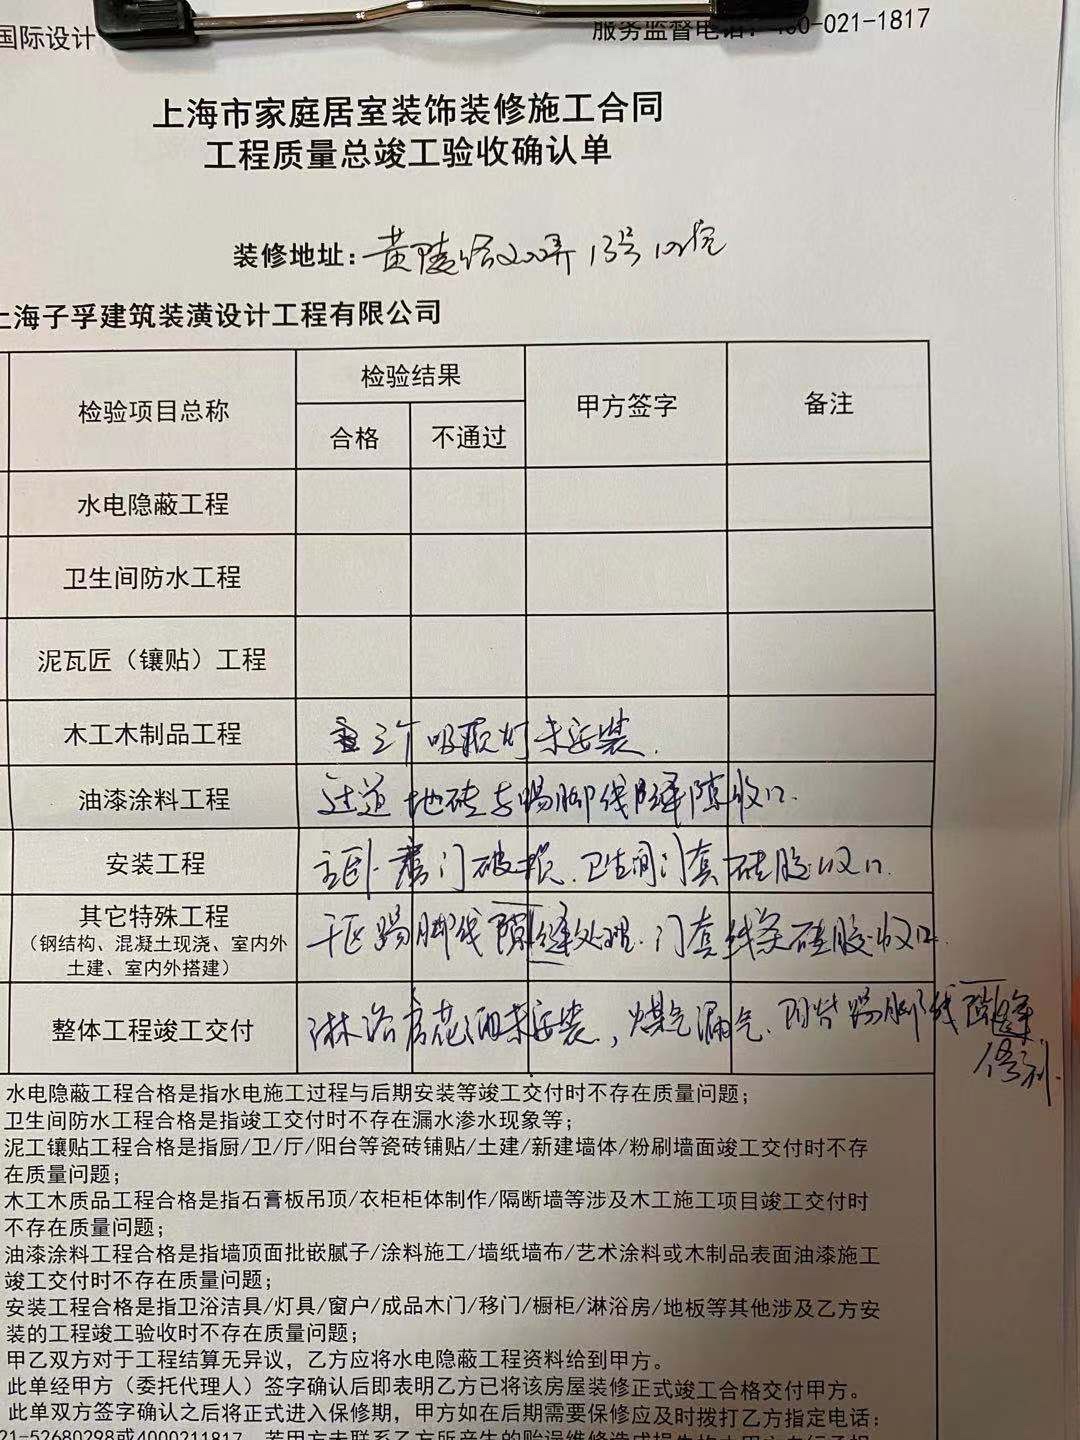 国际设计
服务监督电话：400-021-1817
上海市家庭居室装饰装修施工合同
工程质量总竣工验收确认单
装修地址：黄陵路200弄13号102室
上海子孚建筑装潢设计工程有限公司
检验项目总称
检验结果
合格
不通过
甲方签字
备注
水电隐蔽工程
卫生间防水工程
泥瓦匠（镶贴）工程
木工木制品工程
三个吸顶灯未安装.
油漆涂料工程
过道地砖与踢脚线隙收口.
安装工程
主卧 门破损.卫生间门套硅胶收口.
其它特殊工程
（钢结构、混凝土现浇、室内外
土建、室内外搭建）
干区踢脚线隙缝处理.门套线条硅胶收口.
整体工程竣工交付
淋浴房花洒未安装，煤气漏气. 阳台踢脚线隙缝
修补.
水电隐蔽工程合格是指水电施工过程与后期安装等竣工交付时不存在质量问题；
卫生间防水工程合格是指竣工交付时不存在漏水渗水现象等；
泥工镶贴工程合格是指厨/卫/厅/阳台等瓷砖铺贴/土建/新建墙体/粉刷墙面竣工交付时不存
在质量问题；
木工木质品工程合格是指石膏板吊顶/衣柜柜体制作/隔断墙等涉及木工施工项目竣工交付时
不存在质量问题；
油漆涂料工程合格是指墙顶面批嵌腻子/涂料施工/墙纸墙布/艺术涂料或木制品表面油漆施工
竣工交付时不存在质量问题；
安装工程合格是指卫浴洁具/灯具/窗户/成品木门/移门/橱柜/淋浴房/地板等其他涉及乙方安
装的工程竣工验收时不存在质量问题；
甲乙双方对于工程结算无异议，乙方应将水电隐蔽工程资料给到甲方。
此单经甲方（委托代理人）签字确认后即表明乙方已将该房屋装修正式竣工合格交付甲方。
此单双方签字确认之后将正式进入保修期，甲方如在后期需要保修应及时拨打乙方指定电话：
21-52680298或4000211817，若甲方未联系乙方所产生的